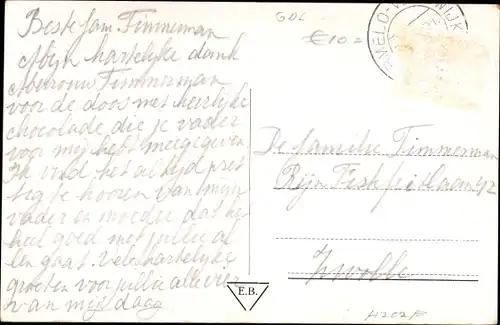 Beste fam Timmerman
Mijn hartelijke dank
Mevrouw Timmerman
voor de doos met heerlijke
chocolade die je vader
voor mij heeft meegegeven
Ik vind het altijd pret
tig te hooren van mijn
vader en moeder dat het
heel goed met jullie al
len gaat. Veel hartelijke
groeten voor jullie alle vier
van mij daag
GDL
€10=
De familie Timmerman
Rijn 42
Zwolle
E.B.